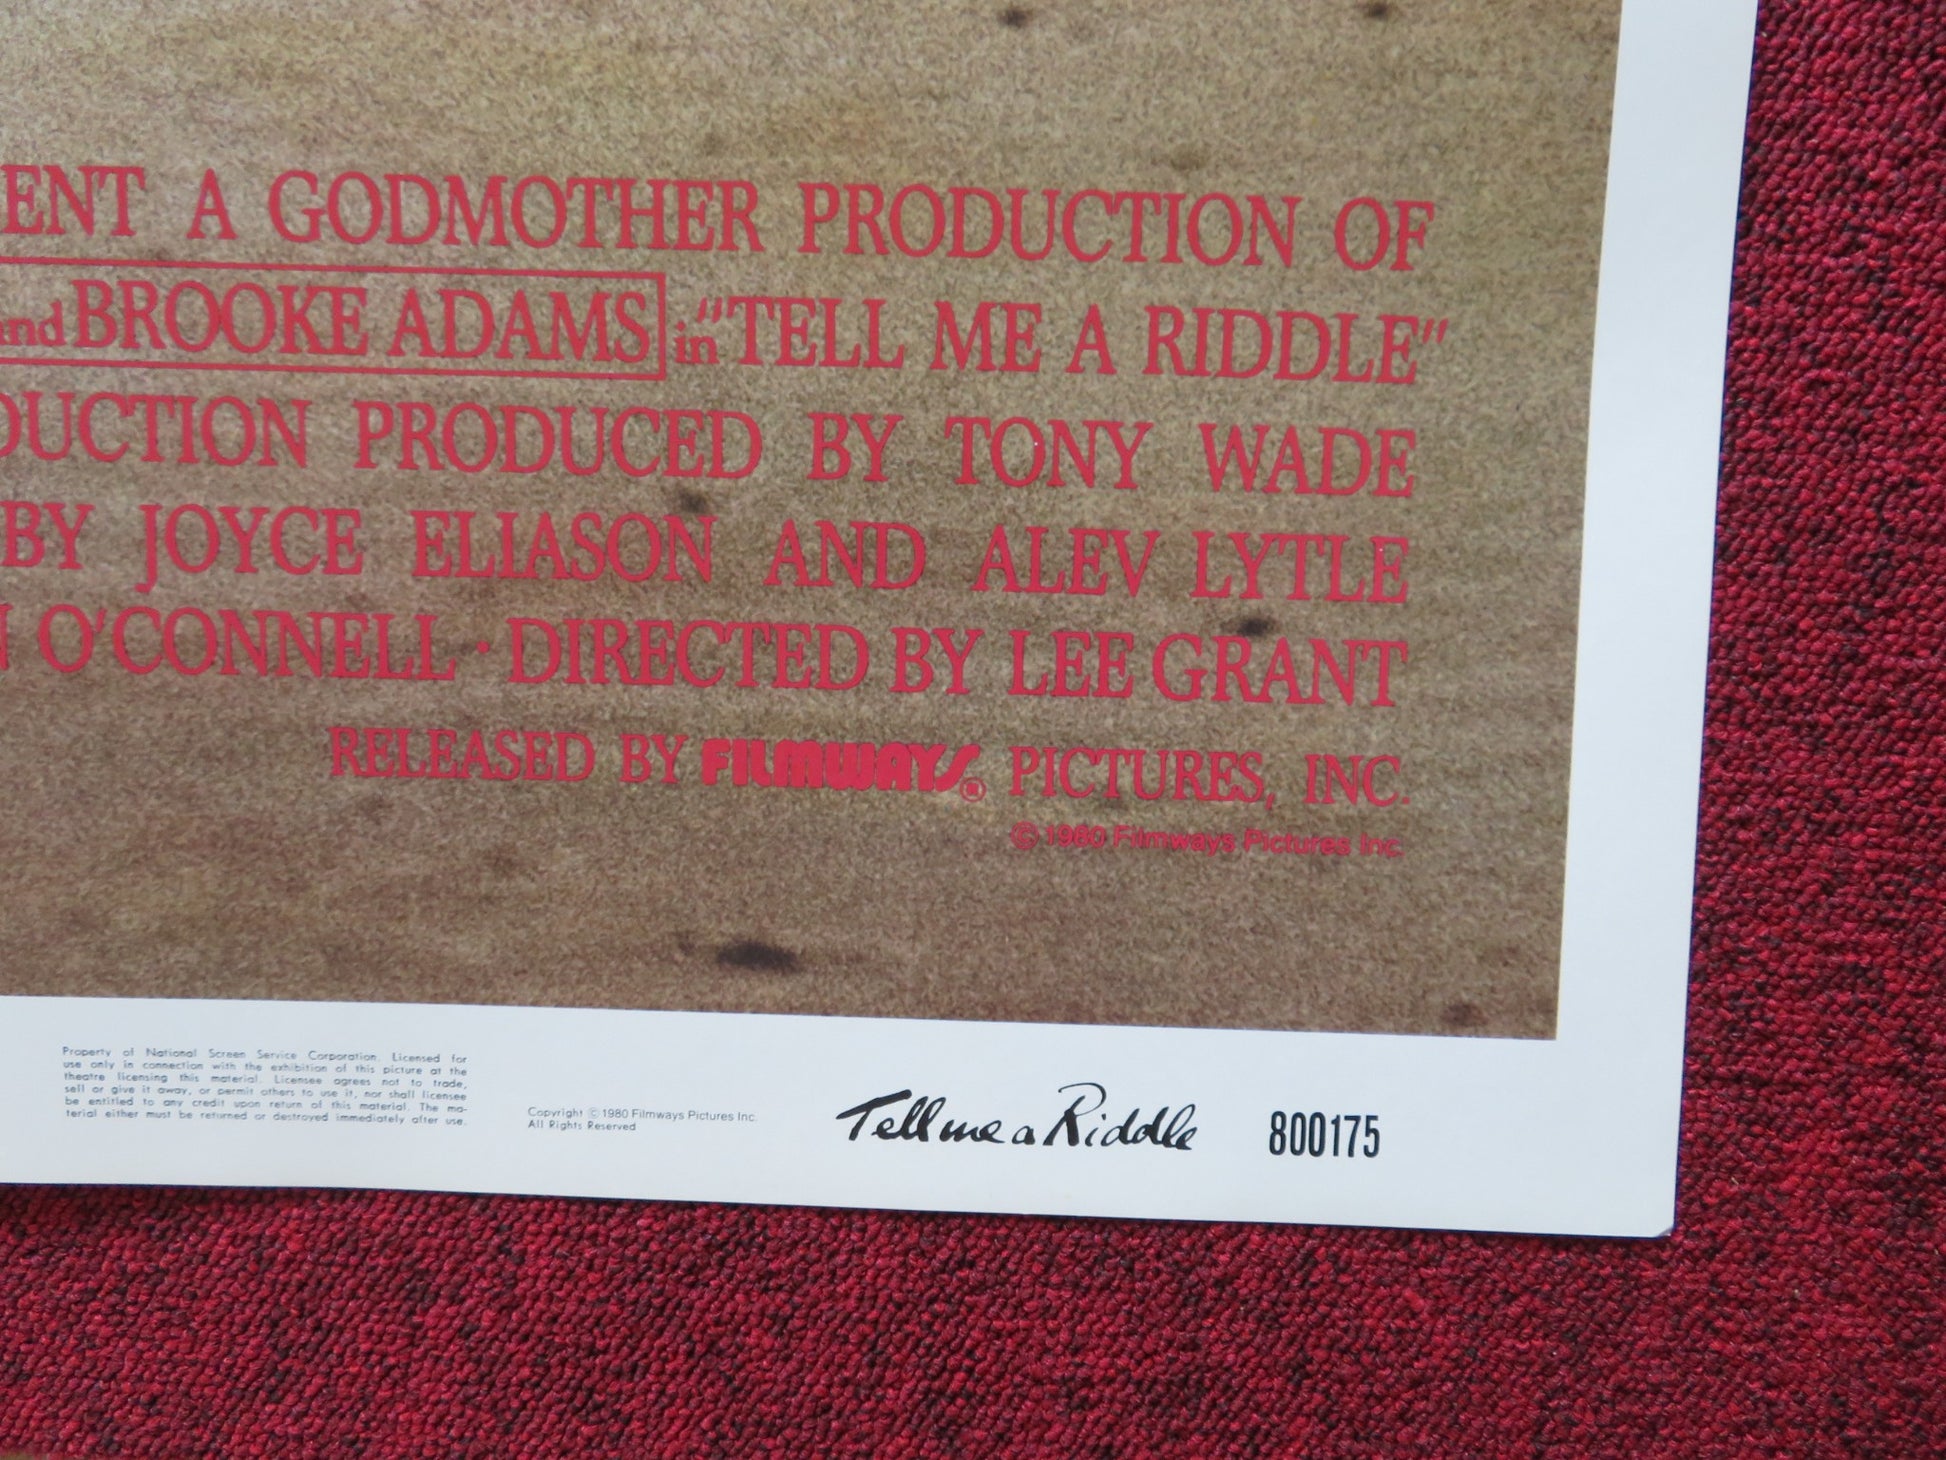 ENT A GODMOTHER PRODUCTION OF
and BROOKE ADAMS in "TELL ME A RIDDLE"
DUCTION PRODUCED BY TONY WADE
BY JOYCE ELIASON AND ALEV LYTLE
N O'CONNELL · DIRECTED BY LEE GRANT
RELEASED BY FILMWAYS® PICTURES, INC.
© 1980 Filmways Pictures Inc.
Property of National Screen Service Corporation. Licensed for
use only in connection with the exhibition of this picture at the
theatre licensing this material. Licensee agrees not to trade,
sell or give it away, or permit others to use it, nor shall licensee
be entitled to any credit upon return of this material. The ma-
terial either must be returned or destroyed immediately after use.
Copyright © 1980 Filmways Pictures Inc.
All Rights Reserved
Tell me a Riddle 800175